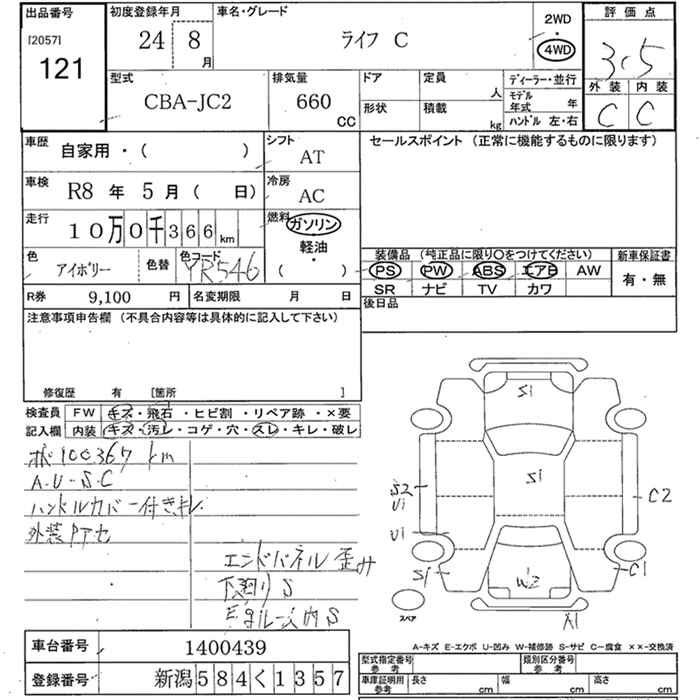 出品番号
[2057]
121
初度登録年月
24 8 月
車名・グレード
ライフ C
2WD
・
4WD
評価点
3.5
外装 内装
C C
型式
CBA-JC2
排気量
660 CC
ドア
形状
定員 人
積載 kg
ディーラー・並行
モデル年式 年
ハンドル 左・右
車歴
自家用・( )
シフト
AT
セールスポイント (正常に機能するものに限ります)
車検
R8 年 5 月 ( 日)
冷房
AC
走行
10万0千366 km
燃料
ガソリン
軽油・
( )
色
アイボリー
色替
色コード
YR546
装備品 (純正品に限り○をつけてください)
PS PW ABS エアB AW
SR ナビ TV カワ
新車保証書
有・無
R券 9,100 円
名変期限 月 日
後日品
注意事項申告欄 (不具合内容等は具体的に記入して下さい)
修復歴 有 [箇所 ]
検査員記入欄
FW キズ・飛石・ヒビ割・リペア跡・×要
内装 キズ・汚レ・コゲ・穴・スレ・キレ・破レ
100367 km
A.U-S.C
ハンドルカバー付きキレ
外装
エンドパネル 歪み
下廻り S
内 S
Si
Si
S2
U1
C2
U1
Si
C1
W2
A1
スペア
A-キズ E-エクボ U-凹み W-補修跡 S-サビ C-腐食 ××-交換済
車台番号 1400439
登録番号 新潟584く1357
型式指定番号 参考
類別区分番号 参考
車庫証明用 参考
長さ cm
幅 cm
高さ cm